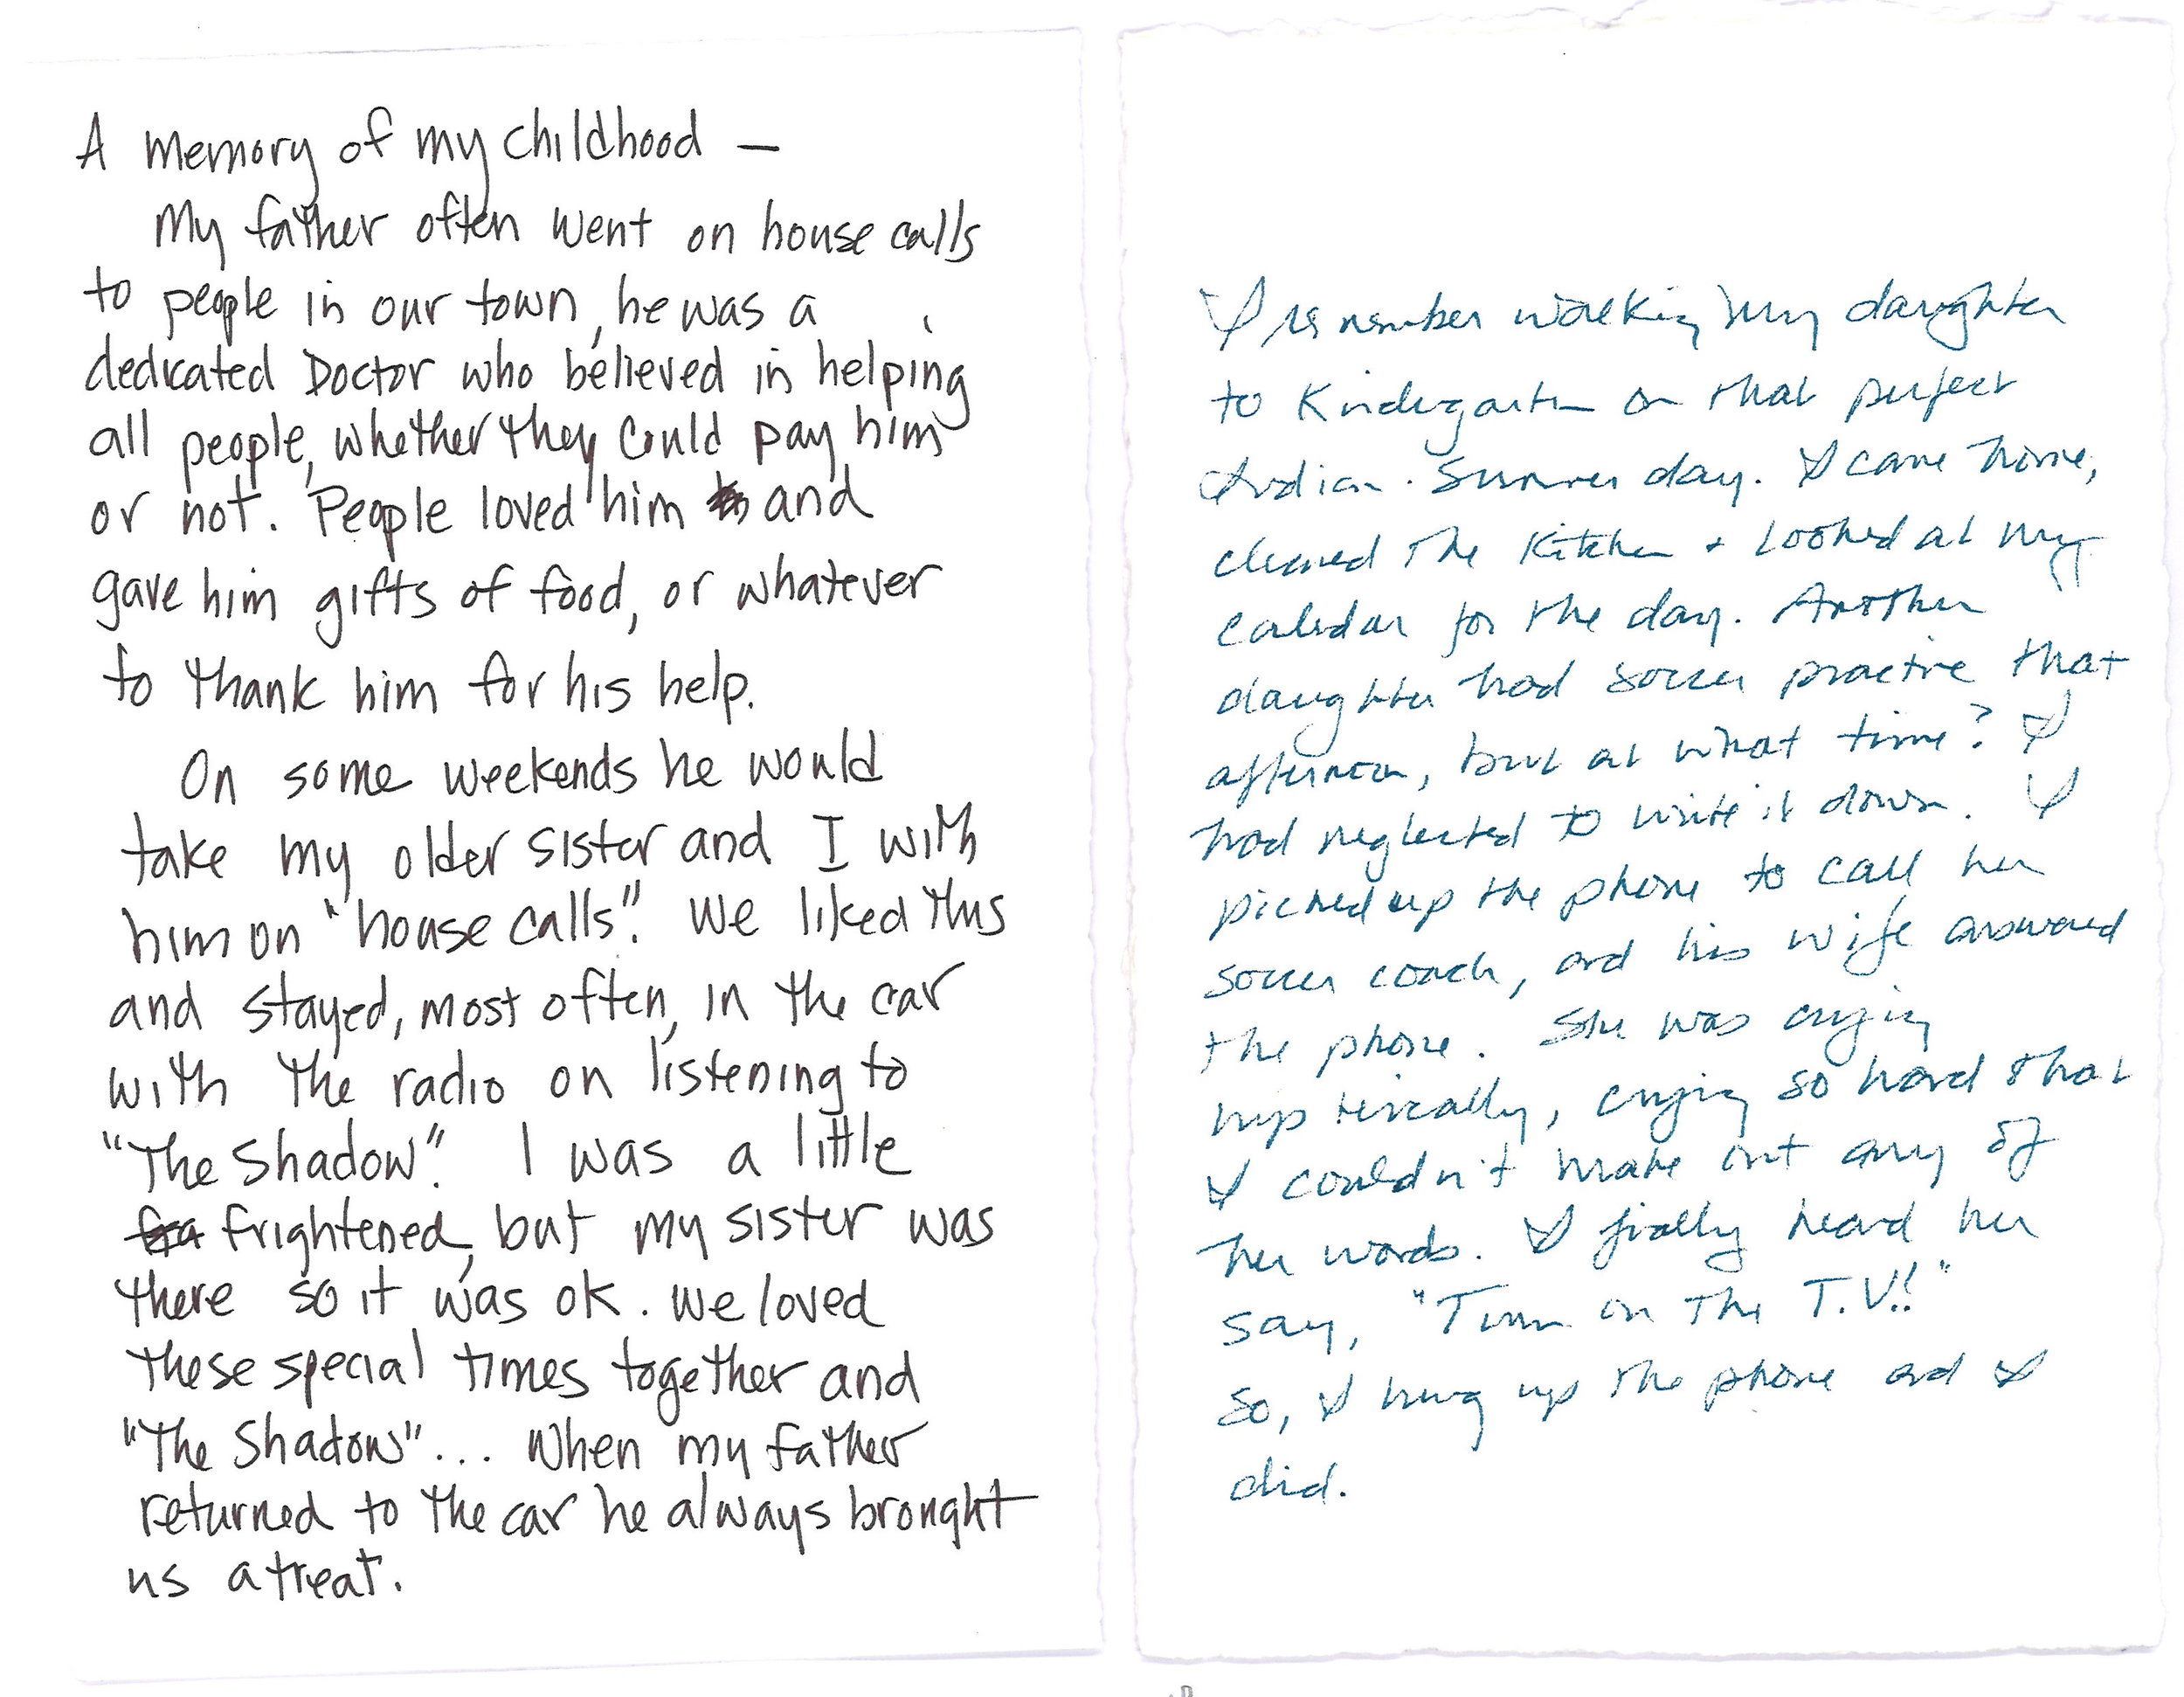 A memory of my childhood —
My father often went on house calls
to people in our town, he was a
dedicated Doctor who believed in helping
all people, whether they could pay him
or not. People loved him and
gave him gifts of food, or whatever
to thank him for his help.
On some weekends he would
take my older sister and I with
him on "house calls". We liked this
and stayed, most often, in the car
with the radio on listening to
"The Shadow". I was a little
fra frightened, but my sister was
there so it was ok. We loved
those special times together and
"The Shadow"... When my father
returned to the car he always brought
us a treat.
I remember walking my daughter
to Kindergarten on that perfect
Indian Summer day. I came home,
cleaned the kitchen + looked at my
calendar for the day. Another
daughter had soccer practice that
afternoon, but at what time? I
had neglected to write it down. I
picked up the phone to call her
soccer coach, and his wife answered
the phone. She was crying
hysterically, crying so hard that
I couldn't make out any of
her words. I finally heard her
say, "Turn on the T.V.!"
So, I hung up the phone and I
did.